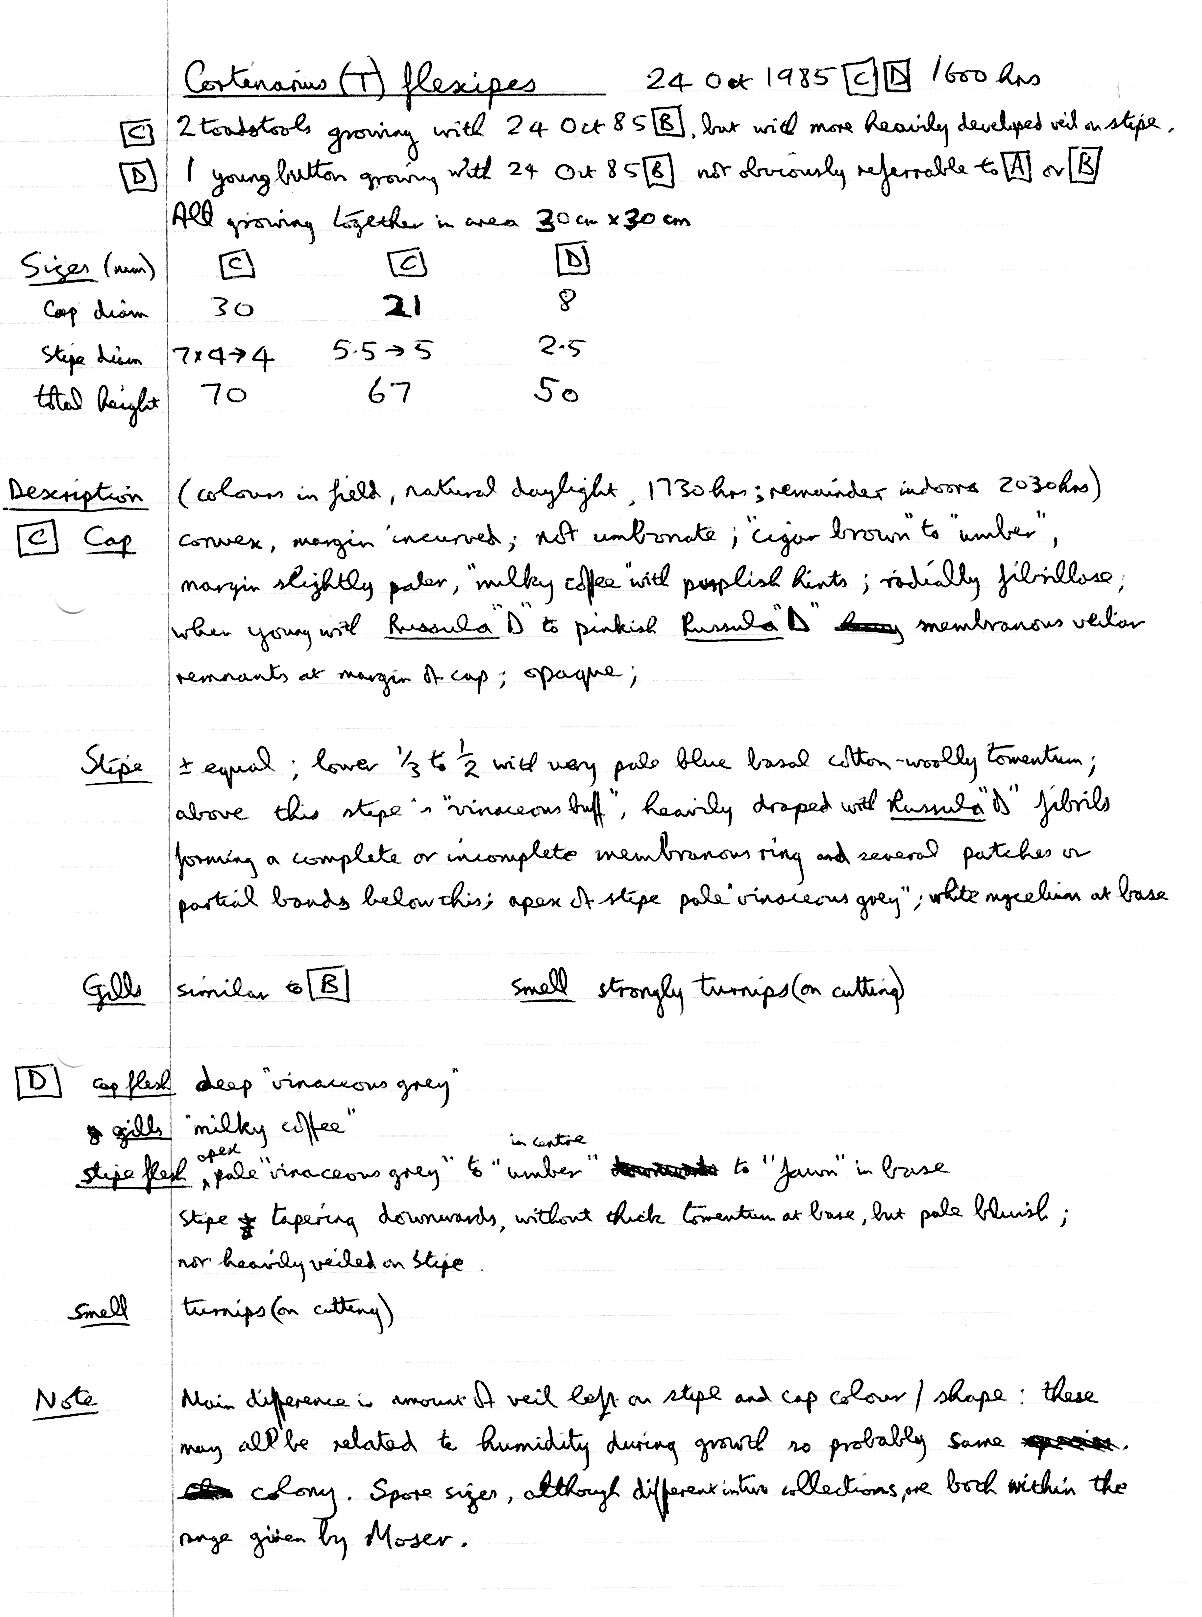 Cortinarius (T) flexipes 24 Oct 1985 [C] [D] 1600 hrs
[C] 2 toadstools growing with 24 Oct 85 [B], but with more heavily developed veil on stipe.
[D] 1 young button growing with 24 Oct 85 [B] not obviously referrable to [A] or [B]
All growing together in area 30cm x 30cm
Sizes (mm) [C] [C] [D]
Cap diam 30 21 8
Stipe diam 7x4→4 5.5→5 2.5
total height 70 67 50
Description (colours in field, natural daylight, 1730hrs; remainder indoors 2030hrs)
[C] Cap convex, margin incurved; not umbonate; "cigar brown" to "umber",
margin slightly paler, "milky coffee" with purplish hints; radially fibrillose;
when young with Russula "D" to pinkish Russula "D" membranous veilar
remnants at margin of cap; opaque;
Stipe ± equal; lower 1/3 to 1/2 with very pale blue basal cotton-woolly tomentum;
above this stipe is "vinaceous buff", heavily draped with Russula "D" fibrils
forming a complete or incomplete membranous ring and several patches or
partial bands below this; apex of stipe pale "vinaceous grey"; white mycelium at base
Gills similar to [B] Smell strongly turnips (on cutting)
[D] cap flesh deep "vinaceous grey"
gills "milky coffee"
stipe flesh apex pale "vinaceous grey" to "umber" in centre to "fawn" in base
stipe tapering downwards, without thick tomentum at base, but pale bluish;
nor heavily veiled on stipe.
Smell turnips (on cutting)
Note Main difference is amount of veil left on stipe and cap colour / shape: these
may all be related to humidity during growth so probably same
colony. Spore sizes, although different in two collections, are both within the
range given by Moser.